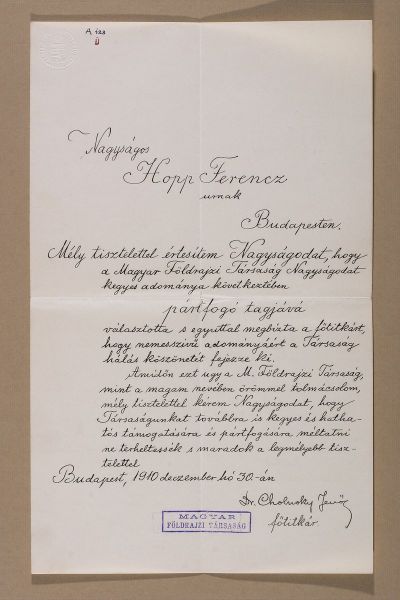 A 123
Nagyságos
Hopp Ferencz
urnak
Budapesten.
Mély tisztelettel értesítem Nagyságodat, hogy
a Magyar Földrajzi Társaság Nagyságodat
kegyes adománya következtében
pártfogó tagjává
választotta s egyúttal megbízta a főtitkárt,
hogy nemesszívű adományáért a Társaság
hálás köszönetét fejezze ki.
Amidőn ezt úgy a M. Földrajzi Társaság,
mint a magam nevében örömmel tolmácsolom,
mély tisztelettel kérem Nagyságodat, hogy
Társaságunkat továbbra is kegyes és hatha-
tós támogatására és pártfogására méltatni
ne terheltessék s maradok a legmélyebb tisz-
telettel
Budapest, 1910 deczember hó 30-án
Dr. Cholnoky Jenő
főtitkár
MAGYAR
FÖLDRAJZI TÁRSASÁG